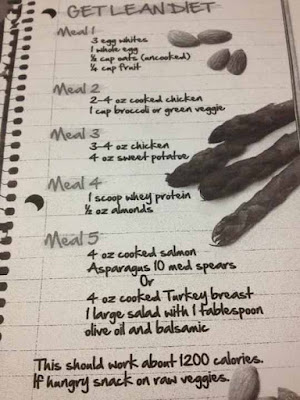 GET LEAN DIET
Meal 1
3 egg whites
1 whole egg
½ cup oats (uncooked)
¼ cup fruit
Meal 2
2-4 oz cooked chicken
1 cup broccoli or green veggie
Meal 3
3-4 oz chicken
4 oz sweet potatoe
Meal 4
1 scoop whey protein
½ oz almonds
Meal 5
4 oz cooked salmon
Asparagus 10 med spears
Or
4 oz cooked Turkey breast
1 large salad with 1 tablespoon
olive oil and balsamic
This should work about 1200 calories.
If hungry snack on raw veggies.